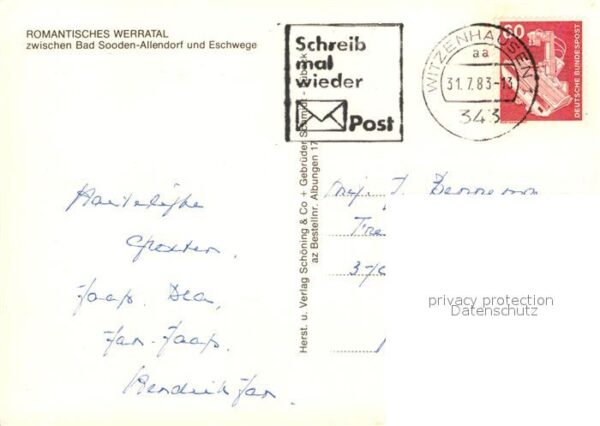 ROMANTISCHES WERRATAL
zwischen Bad Sooden-Allendorf und Eschwege
Schreib
mal
wieder
Post
WITZENHAUSEN 1
aa
31.7.83-13
343
60
DEUTSCHE BUNDESPOST
Herst. u. Verlag Schöning & Co + Gebrüder Schmidt - Lübeck
az Bestellnr. Albungen 17
Hartelijke
Groeten.
Jaap. Dea,
Jan-Jaap.
Hendrik Jan.
J.
privacy protection
Datenschutz